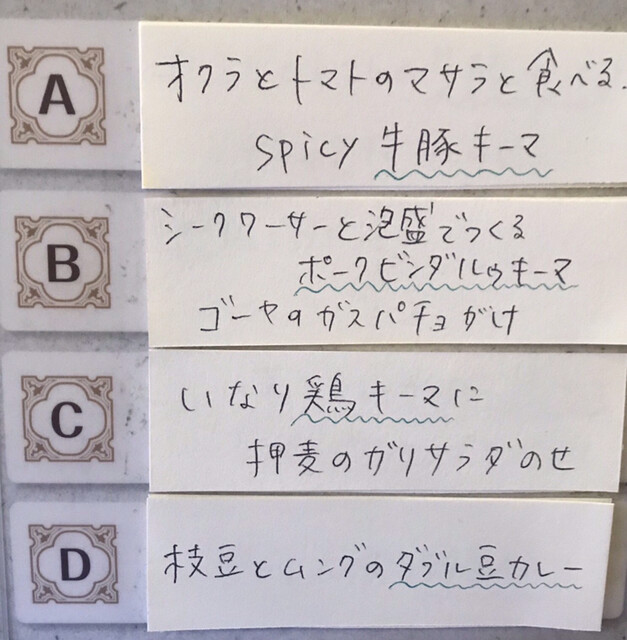 A
オクラとトマトのマサラと食べる.
spicy 牛豚キーマ
B
シークワーサーと泡盛でつくる
ポークビンダルゥキーマ
ゴーヤのガスパチョがけ
C
いなり鶏キーマに
押麦のガリサラダのせ
D
枝豆とムングのダブル豆カレー